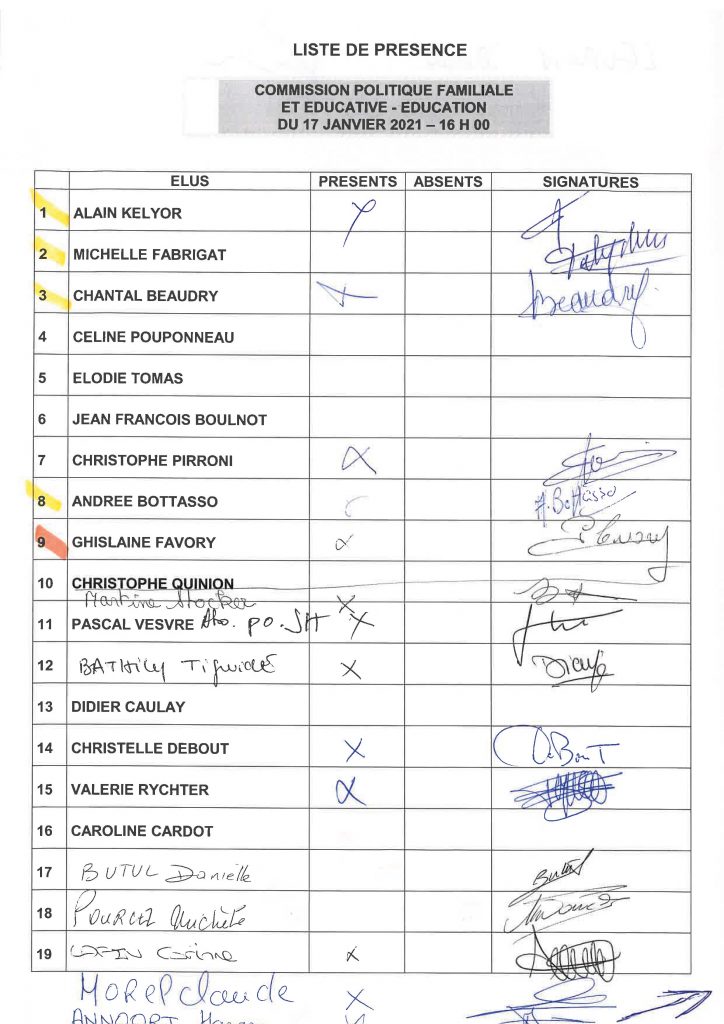 LISTE DE PRESENCE
COMMISSION POLITIQUE FAMILIALE
ET EDUCATIVE - EDUCATION
DU 17 JANVIER 2021 – 16 H 00
ELUS PRESENTS ABSENTS SIGNATURES
1 ALAIN KELYOR
2 MICHELLE FABRIGAT
3 CHANTAL BEAUDRY X Beaudry
4 CELINE POUPONNEAU
5 ELODIE TOMAS
6 JEAN FRANCOIS BOULNOT
7 CHRISTOPHE PIRRONI
8 ANDREE BOTTASSO A. Bottasso
9 GHISLAINE FAVORY
10 CHRISTOPHE QUINION
Martine Stocker X
11 PASCAL VESVRE po. SH X
12 BATHILY X
13 DIDIER CAULAY
14 CHRISTELLE DEBOUT X DeBouT
15 VALERIE RYCHTER
16 CAROLINE CARDOT
17 BUTUL Danielle
18 Michèle
19 Corinne X
MOREL claude X